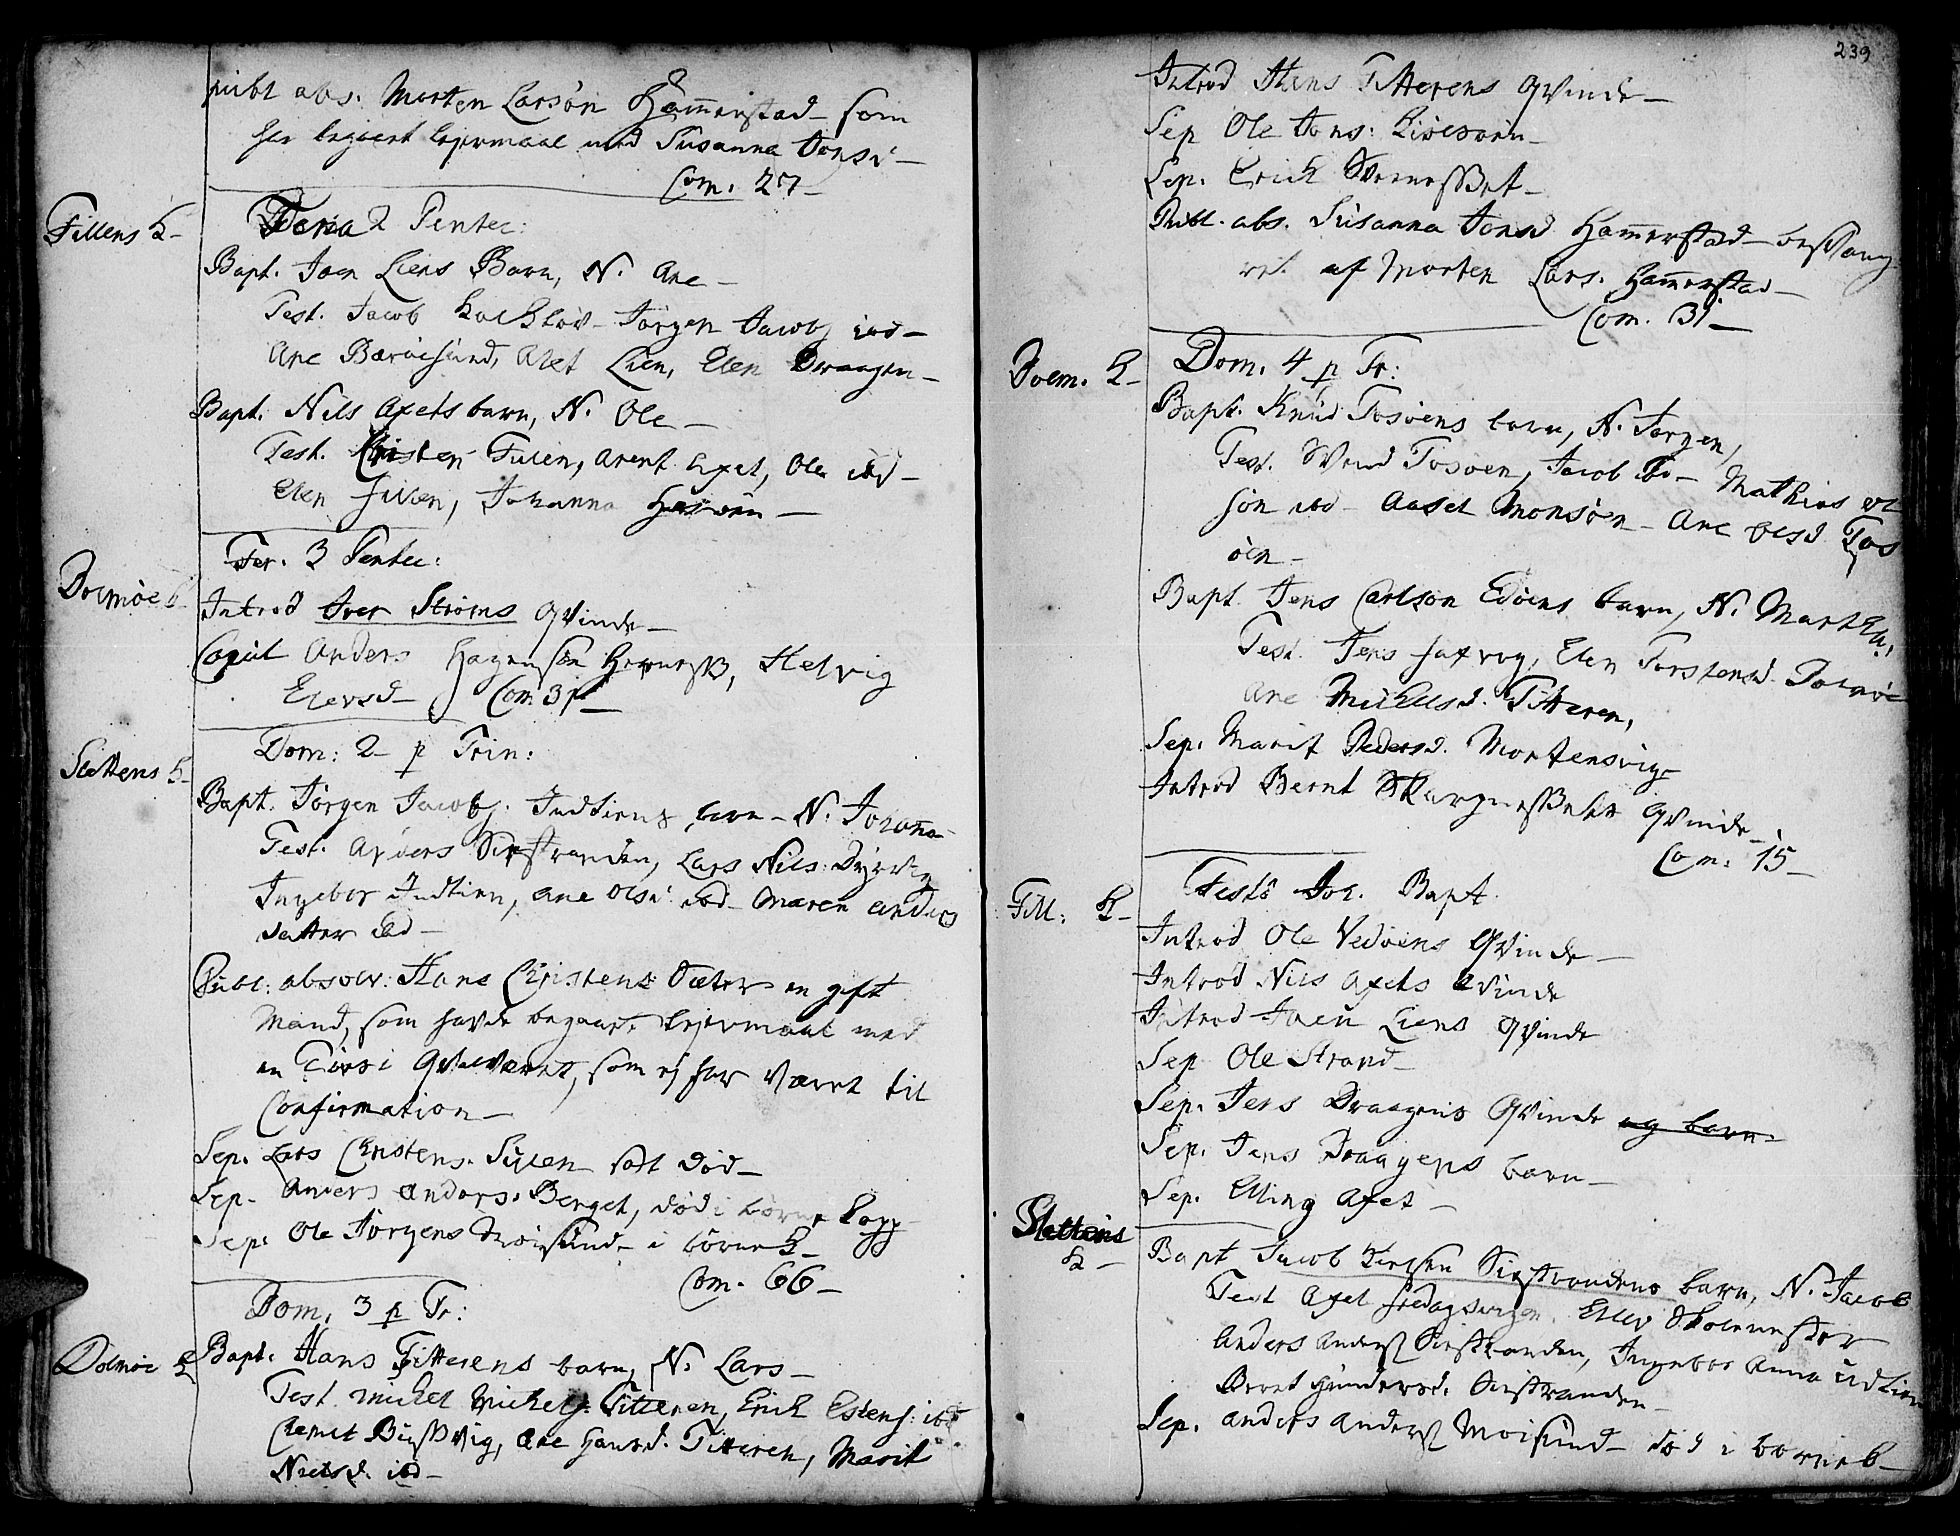 publ abs. Morten Larsøn Ham̄erstad som
har begaaet lejermaal med Susanna Jonsd
Com. 27
Fillens K
Feria 2 Pentec:
Bapt. Joen Liens Barn, N. Ane
Test. Jacob Jørgen Jacobs ibd
Ane Bæroesund, Alet Lien, Elen Draagen
Bapt. Nils Axets barn, N. Ole
Test. Christen Fillen, Arent Axet, Ole ibd
Elen Fillen, Johanna
Fer. 3 Pentec:
Dolmøe K
Introd Iver Strøms Qvinde
Copul Anders Hagensøn Helvig
Elersd Com 31
Slettens K
Dom: 2 p Trin:
Bapt. Jørgen Jacobs. Indtiens barn N. Johan̄a
Test. Anders Sistranden, Lars Nils. Dyrvig
Ingebor Indtien, Ane Olsd ibd Maren Anders
datter ibd
Publ: absolv: Hans Christens Sæter en gift
Mand, som havde begaaet lejermaal med
en Tøes i Qvalværet, som ej har været til
Confirmation
Sep. Lars Christens. Sulen død
Sep. Anders Anders. Berget, død i børne kopp
Sep. Ole Jørgens Moisund i børne K
Com. 66
Dom. 3 p Tr:
Dolmøe K
Bapt. Hans Titterens barn, N. Lars
Test. Michel Michels. Titteren, Erich Estens. ibd
Clemet Ane Hansd. Titteren, Marit
Nielsd. ibd
239
Introd Hans Titterens Qvinde
Sep Ole Jons:
Sep. Erich
Publ. abs. Susanna Jonsd Ham̄erstad besvang
ret af Morten Lars. Ham̄erstad
Com. 31
Dolm. K
Dom. 4 p Tr:
Bapt. Knud Tosøens barn, N. Jørgen,
Test. Svend Tosøen, Jacob ibd Mathias Ol
søn ibd Aasel Monsøen Ane Olsd Tos
øen
Bapt. Jens Carlsøn Edøens barn, N. Martha,
Test. Jens Elen Torstensd. Dolmøe
Ane Michelsd. Titteren,
Sep. Marit Pedersd. Mortensvig
Introd Bernt Qvinde
Com: 15
Till: K
Festo Joh. Bapt.
Introd Ole Vedøens Qvinde
Introd Nils Axets Qvinde
Introd Joen Liens Qvinde
Sep Ole Strand
Sep. Jens Draagens Qvinde og barn
Sep. Jens Draagens barn
Sep. Elling Axet
Slettens
K
Bapt Jacob Sistrandens barn, N. Jacob
Test Axel Eller Skolemester
Anders Anders Sistranden, Ingebor Anna Indtien
Beret Gundersd. Sistranden
Sep. Anders Anders Moisund død i børne k